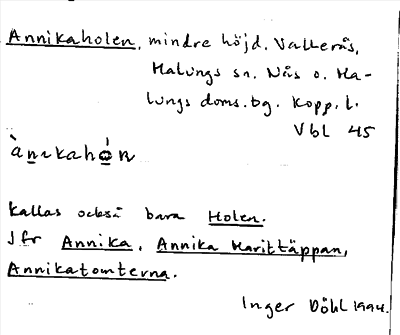 Annikaholen, mindre höjd, Vallerås,
Malungs sn. Nås o. Ma-
lungs doms.bg. Kopp. l.
Vbl 45
ànikahón
Kallas också bara Holen.
Jfr Annika, Annika Marittäppan,
Annikatomterna.
Inger Döhl 1994.